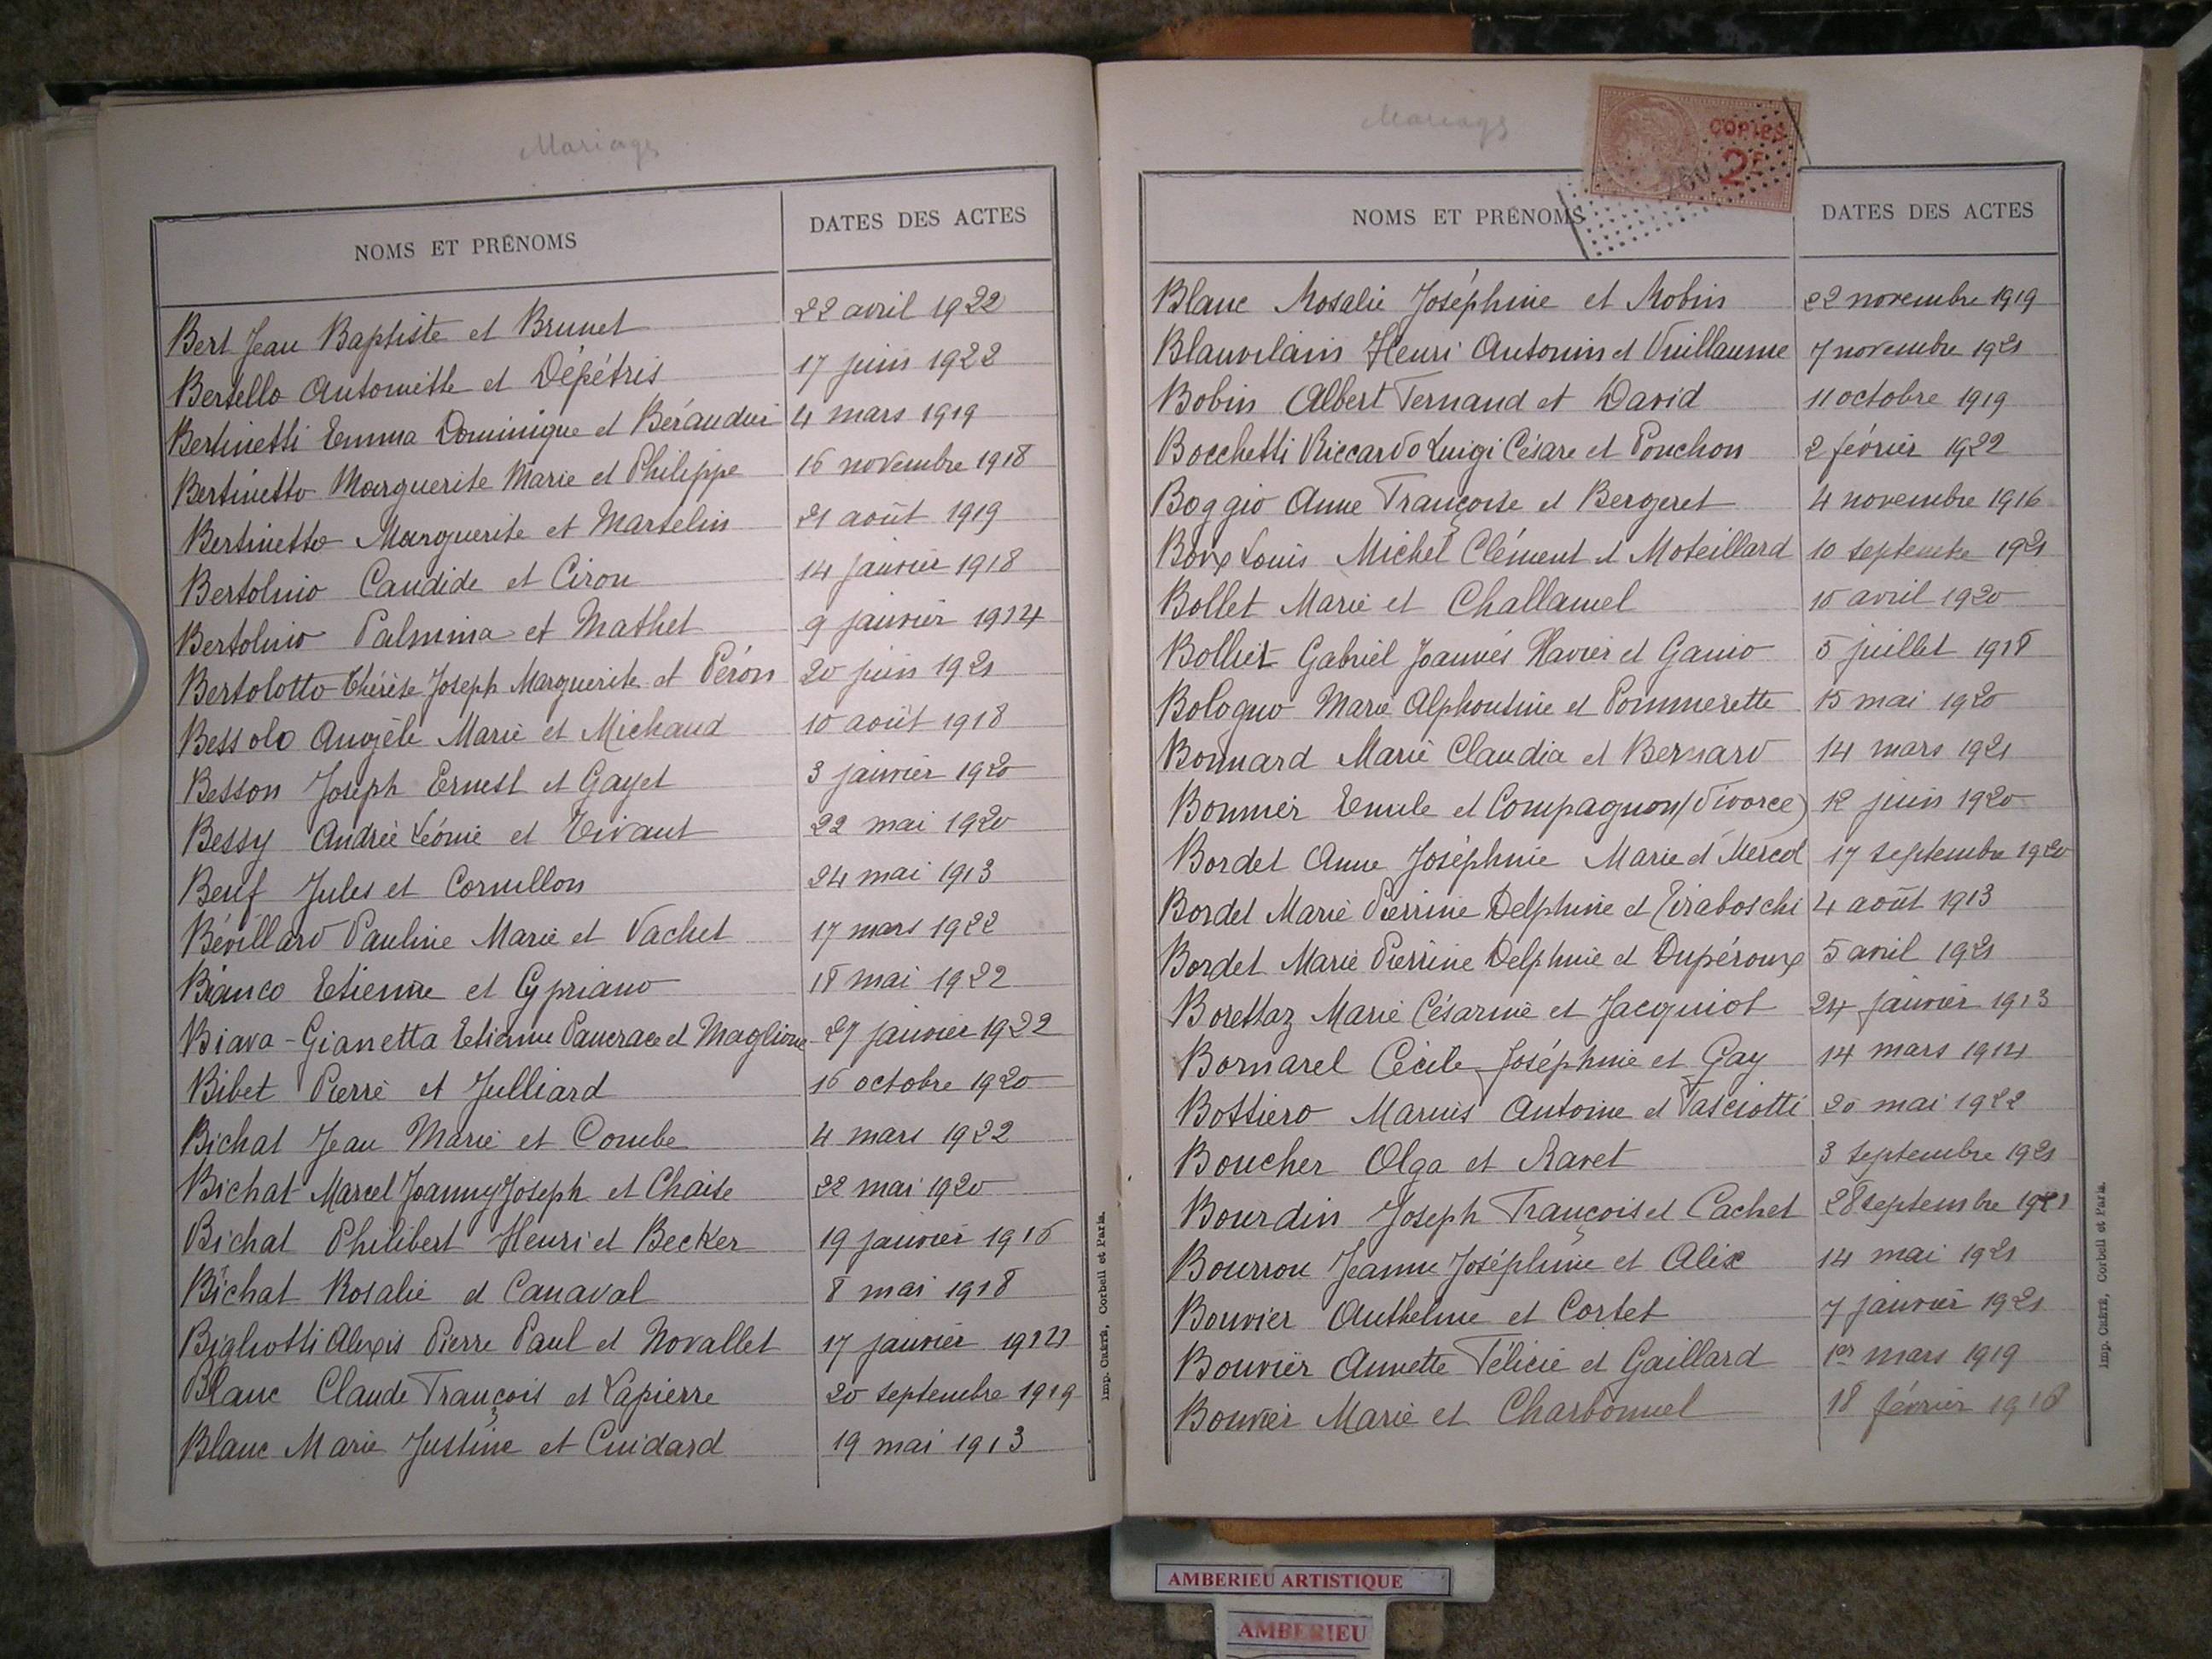 Mariages
NOMS ET PRÉNOMS DATES DES ACTES
Bert Jean Baptiste et Brunet 22 avril 1922
Bertello Antoinette et Dépétris 17 juin 1922
Bertinetti Emma Dominique et Béraudui 4 mars 1919
Bertinetto Marguerite Marie et Philippe 16 novembre 1918
Bertinetto Marguerite et Martelin 21 août 1919
Bertolino Candide et Ciron 14 janvier 1918
Bertolino Palmina et Mathet 9 janvier 1914
Bertolotto Thérèse Joseph Marguerite et Péron 20 juin 1921
Bessolo Angèle Marie et Michaud 10 août 1918
Besson Joseph Ernest et Gayet 3 janvier 1920
Bessy Andrée Léonie et Tivant 22 mai 1920
Beuf Jules et Cornillon 24 mai 1913
Bévillard Pauline Marie et Vachet 17 mars 1922
Bianco Etienne et Cypriano 18 mai 1922
Biava-Gianetta Etienne Pancrace et Maglione 27 janvier 1922
Bibet Pierre et Julliard 16 octobre 1920
Bichat Jean Marie et Combe 4 mars 1922
Bichat Marcel Joanny Joseph et Chaise 22 mai 1920
Bichat Philibert Henri et Becker 19 janvier 1916
Bichat Rosalie et Canaval 8 mai 1918
Bigliotti Alexis Pierre Paul et Novallet 17 janvier
Blanc Claude François et Lapierre 20 septembre 1919
Blanc Marie Justine et Cuidard 19 mai 1913
Imp. CRÉTÉ, Corbeil et Paris.
Mariages
COPIES
2F
NOMS ET PRÉNOMS DATES DES ACTES
Blanc Rosalie Joséphine et Robin 22 novembre 1919
Blauvelain Henri Antonin et Vuillaume 7 novembre 1921
Bobin Albert Fernand et David 11 octobre 1919
Bocchetti Riccardo Luigi Césare et Pouchon 2 février 1922
Boggio Anne Françoise et Bergeret 4 novembre 1916
Louis Michel Clément et Moteillard 10 septembre 1921
Bollet Marie et Challamel 10 avril 1920
Bolliet Gabriel Joannès Xavier et Ganio 5 juillet 1918
Bologno Marie Alphonsine et Pommerette 15 mai 1920
Bonnard Marie Claudia et Bernard 14 mars 1921
Bonnier Emile et Compagnon (divorce) 12 juin 1920
Bordet Anne Joséphine Marie et Mercol 17 septembre 1920
Bordet Marie Pierrine Delphine et Tiraboschi 4 août 1913
Bordet Marie Pierrine Delphine et Dupéroux 5 avril 1921
Borettaz Marie Césarine et Jacquiot 24 janvier 1913
Bornarel Cécile Joséphine et Gay 14 mars 1914
Bottiero Marius Antoine et Fasciotti 20 mai 1922
Boucher Olga et Ravet 3 septembre 1921
Bourdin Joseph François et Cachet 28 septembre 1921
Bourrou Jeanne Joséphine et Alix 14 mai 1921
Bouvier Anthelme et Cortet 7 janvier 1921
Bouvier Annette Félicie et Gaillard 1er mars 1919
Bouvier Marie et Charbonnel 18 février 1918
Imp. CRÉTÉ, Corbeil et Paris.
AMBERIEU ARTISTIQUE
AMBERIEU